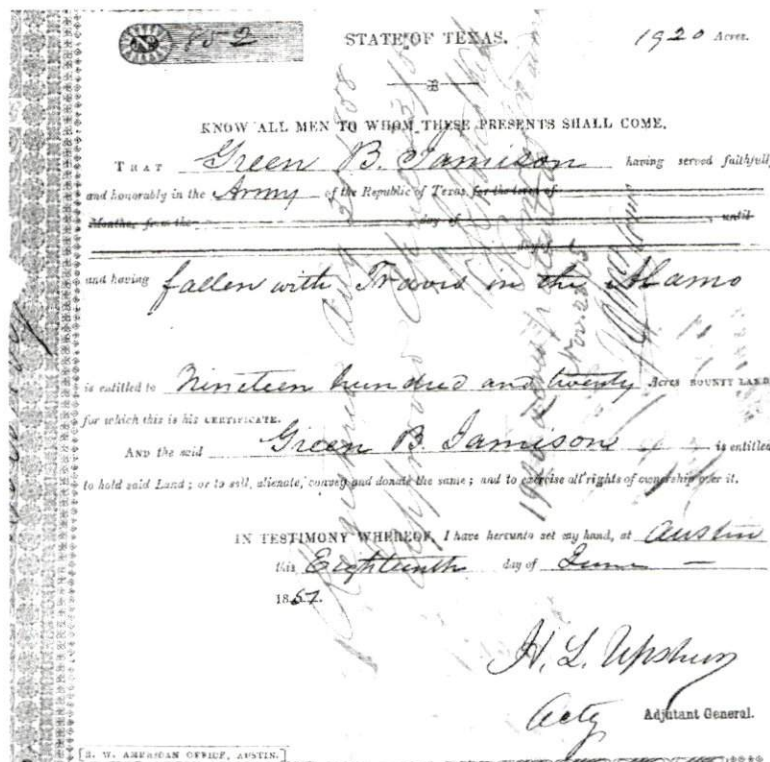 No 852 STATE OF TEXAS. 1920 Acres.
KNOW ALL MEN TO WHOM THESE PRESENTS SHALL COME,
THAT Green B. Jamison having served faithfully
and honorably in the Army of the Republic of Texas for the term of
Months, from the day of , until
day of
and having fallen with Travis in the Alamo
is entitled to Nineteen hundred and twenty Acres BOUNTY LAND
for which this is his CERTIFICATE.
AND the said Green B. Jamison is entitled
to hold said Land; or to sell, alienate, convey and donate the same; and to exercise all rights of ownership over it.
IN TESTIMONY WHEREOF, I have hereunto set my hand, at Austin
this Eighteenth day of June
1857.
H. L. Upshur
Actg Adjutant General.
[S. W. AMERICAN OFFICE, AUSTIN.]